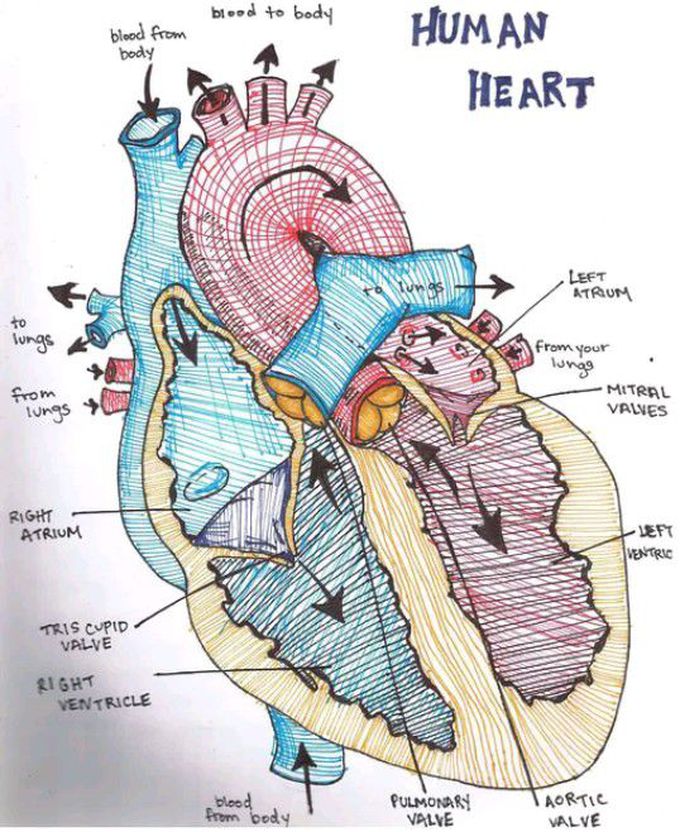 HUMAN
HEART
blood to body
blood from
body
to lungs
LEFT
ATRIUM
to
lungs
from your
lungs
from
lungs
MITRAL
VALVES
RIGHT
ATRIUM
LEFT
VENTRIC
TRIS CUPID
VALVE
RIGHT
VENTRICLE
blood
from body
PULMONARY
VALVE
AORTIC
VALVE